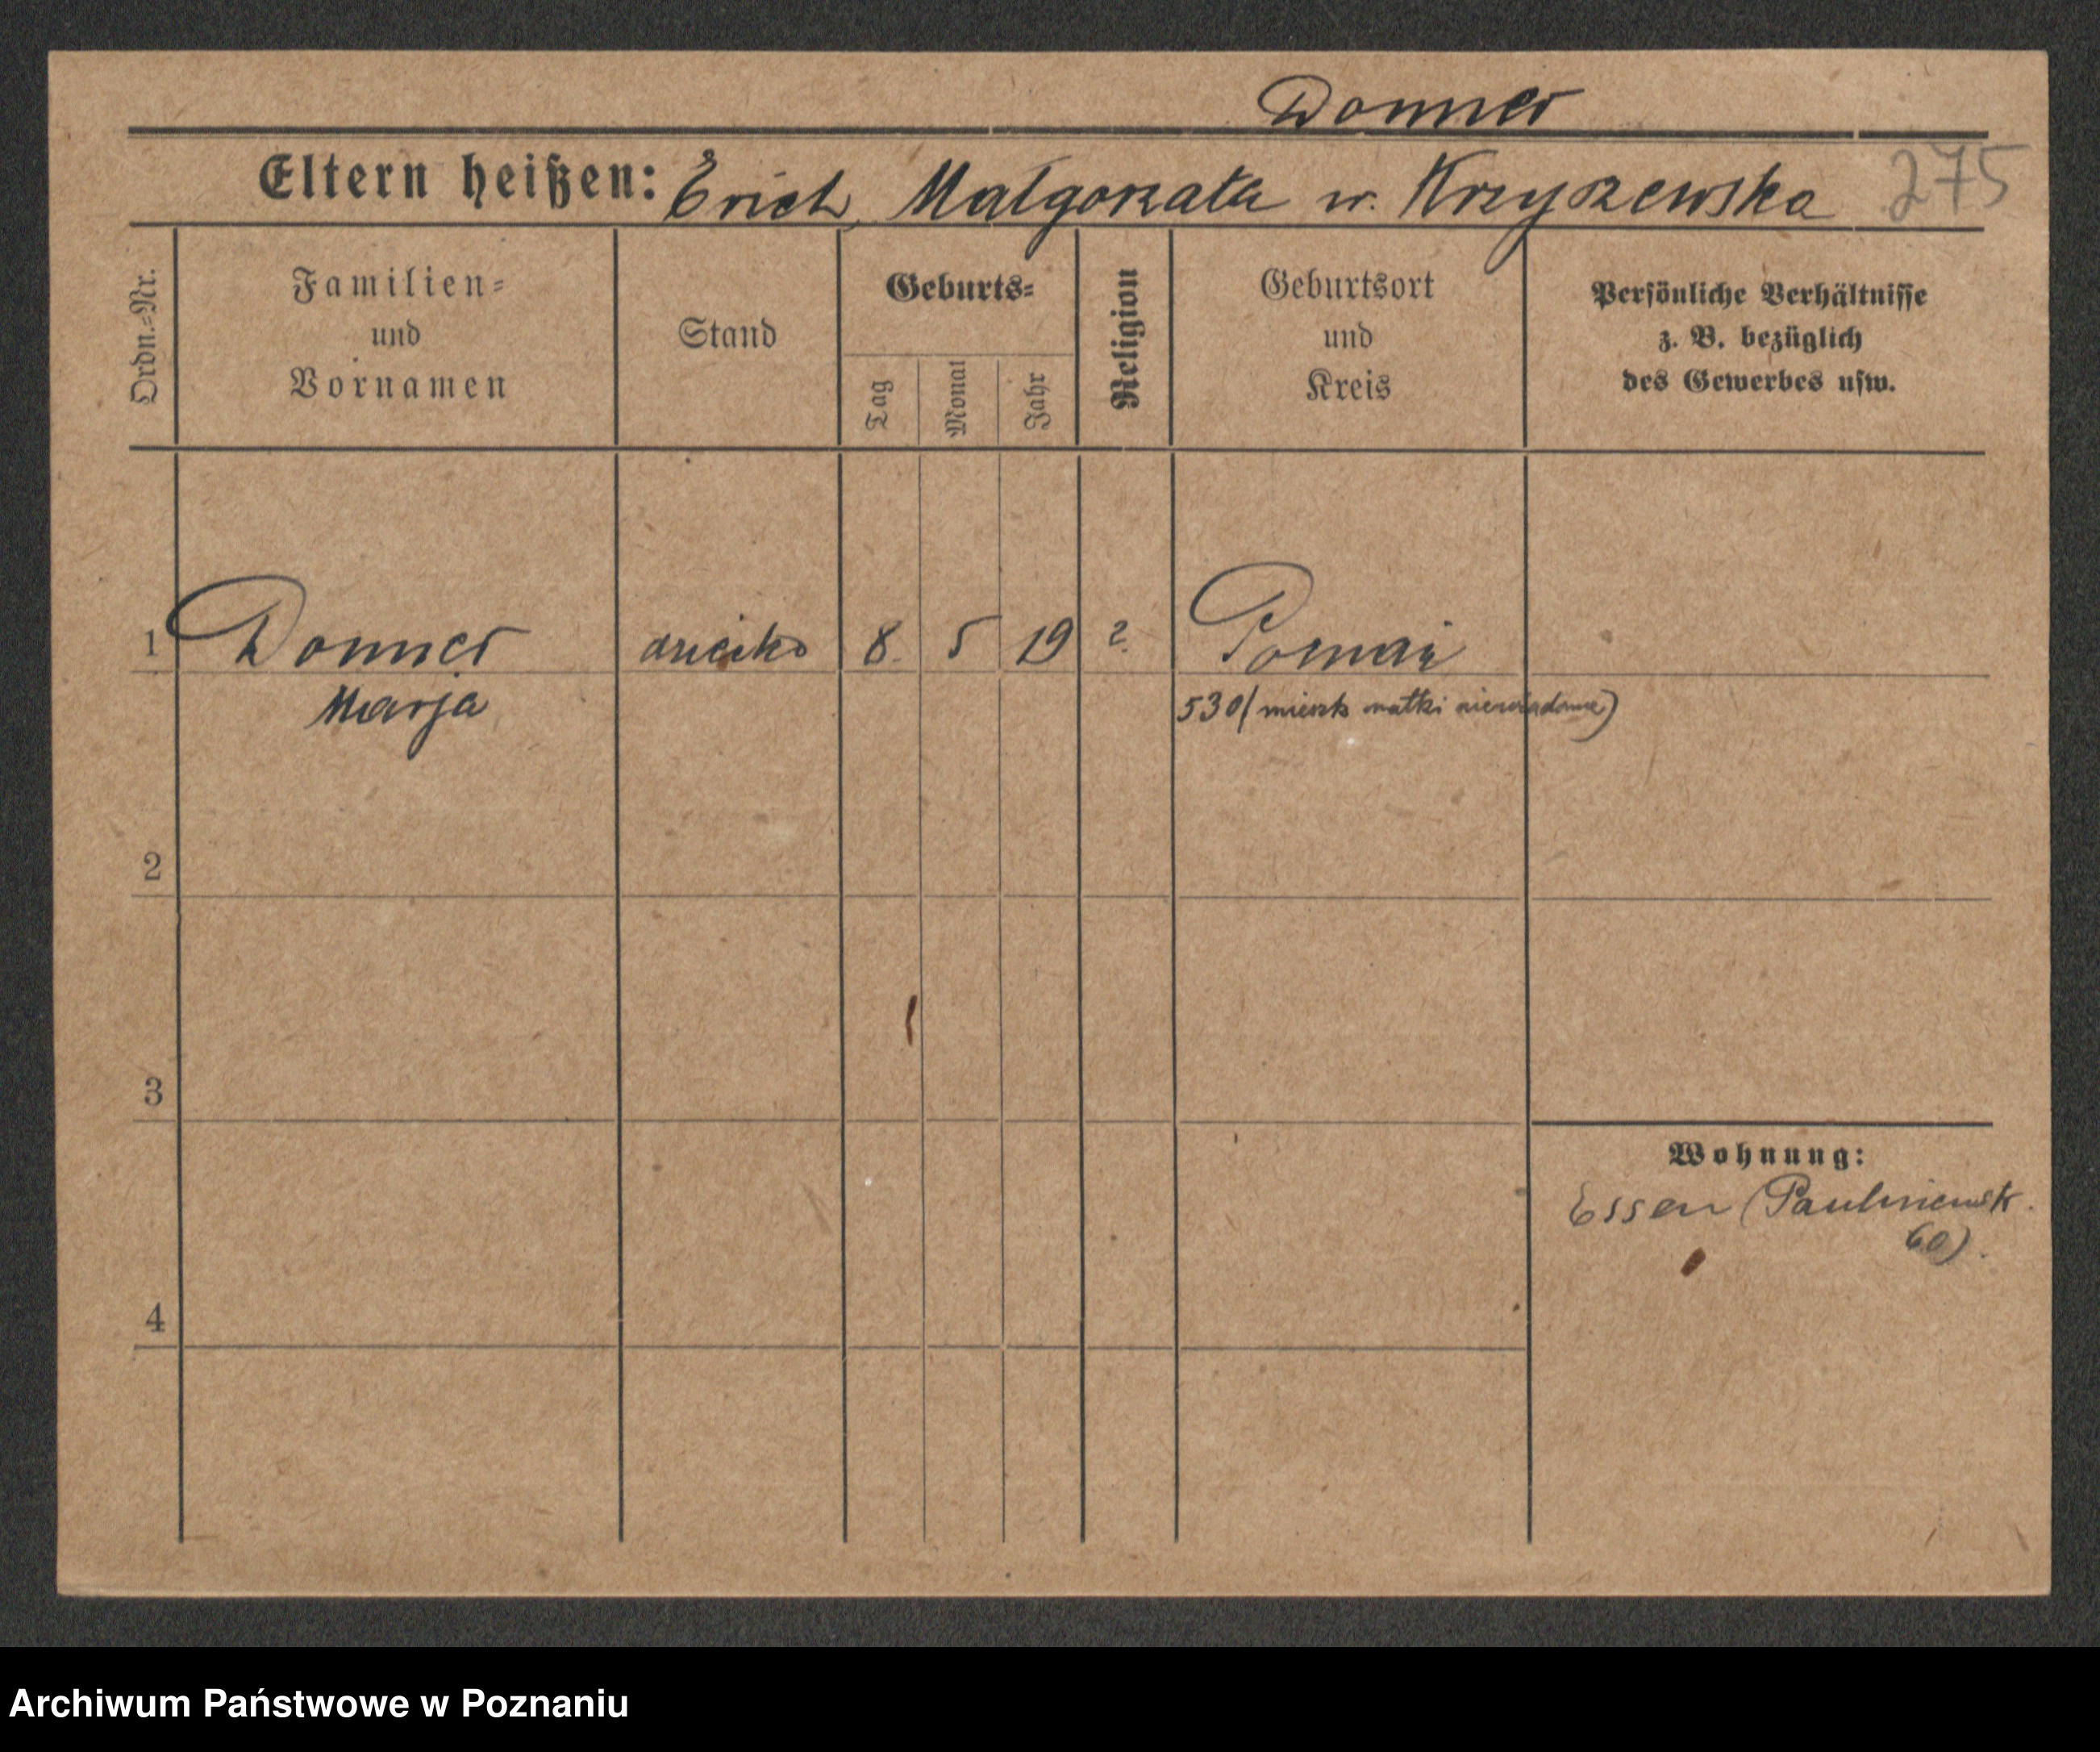 Donner
Eltern heißen: Erich, Małgorzata w. Krzyszewska 275
Ordn.-Nr.
Familien-
und
Vornamen
Stand
Geburts-
Tag
Monat
Jahr
Religion
Geburtsort
und
Kreis
Persönliche Verhältnisse
z. B. bezüglich
des Gewerbes usw.
1 Donner dziecko 8. 5 19 ? Poznań
Marja 530 (mieszk matki niewiadome)
2
3
Wohnung:
Essen (
60).
4
Archiwum Państwowe w Poznaniu